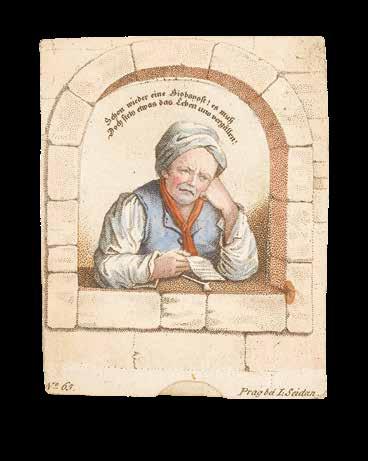 Schon wieder eine Hiobspost! es muß
Doch stets etwas das Leben uns vergällen!
No. 63.
Prag bei I. Seidan.